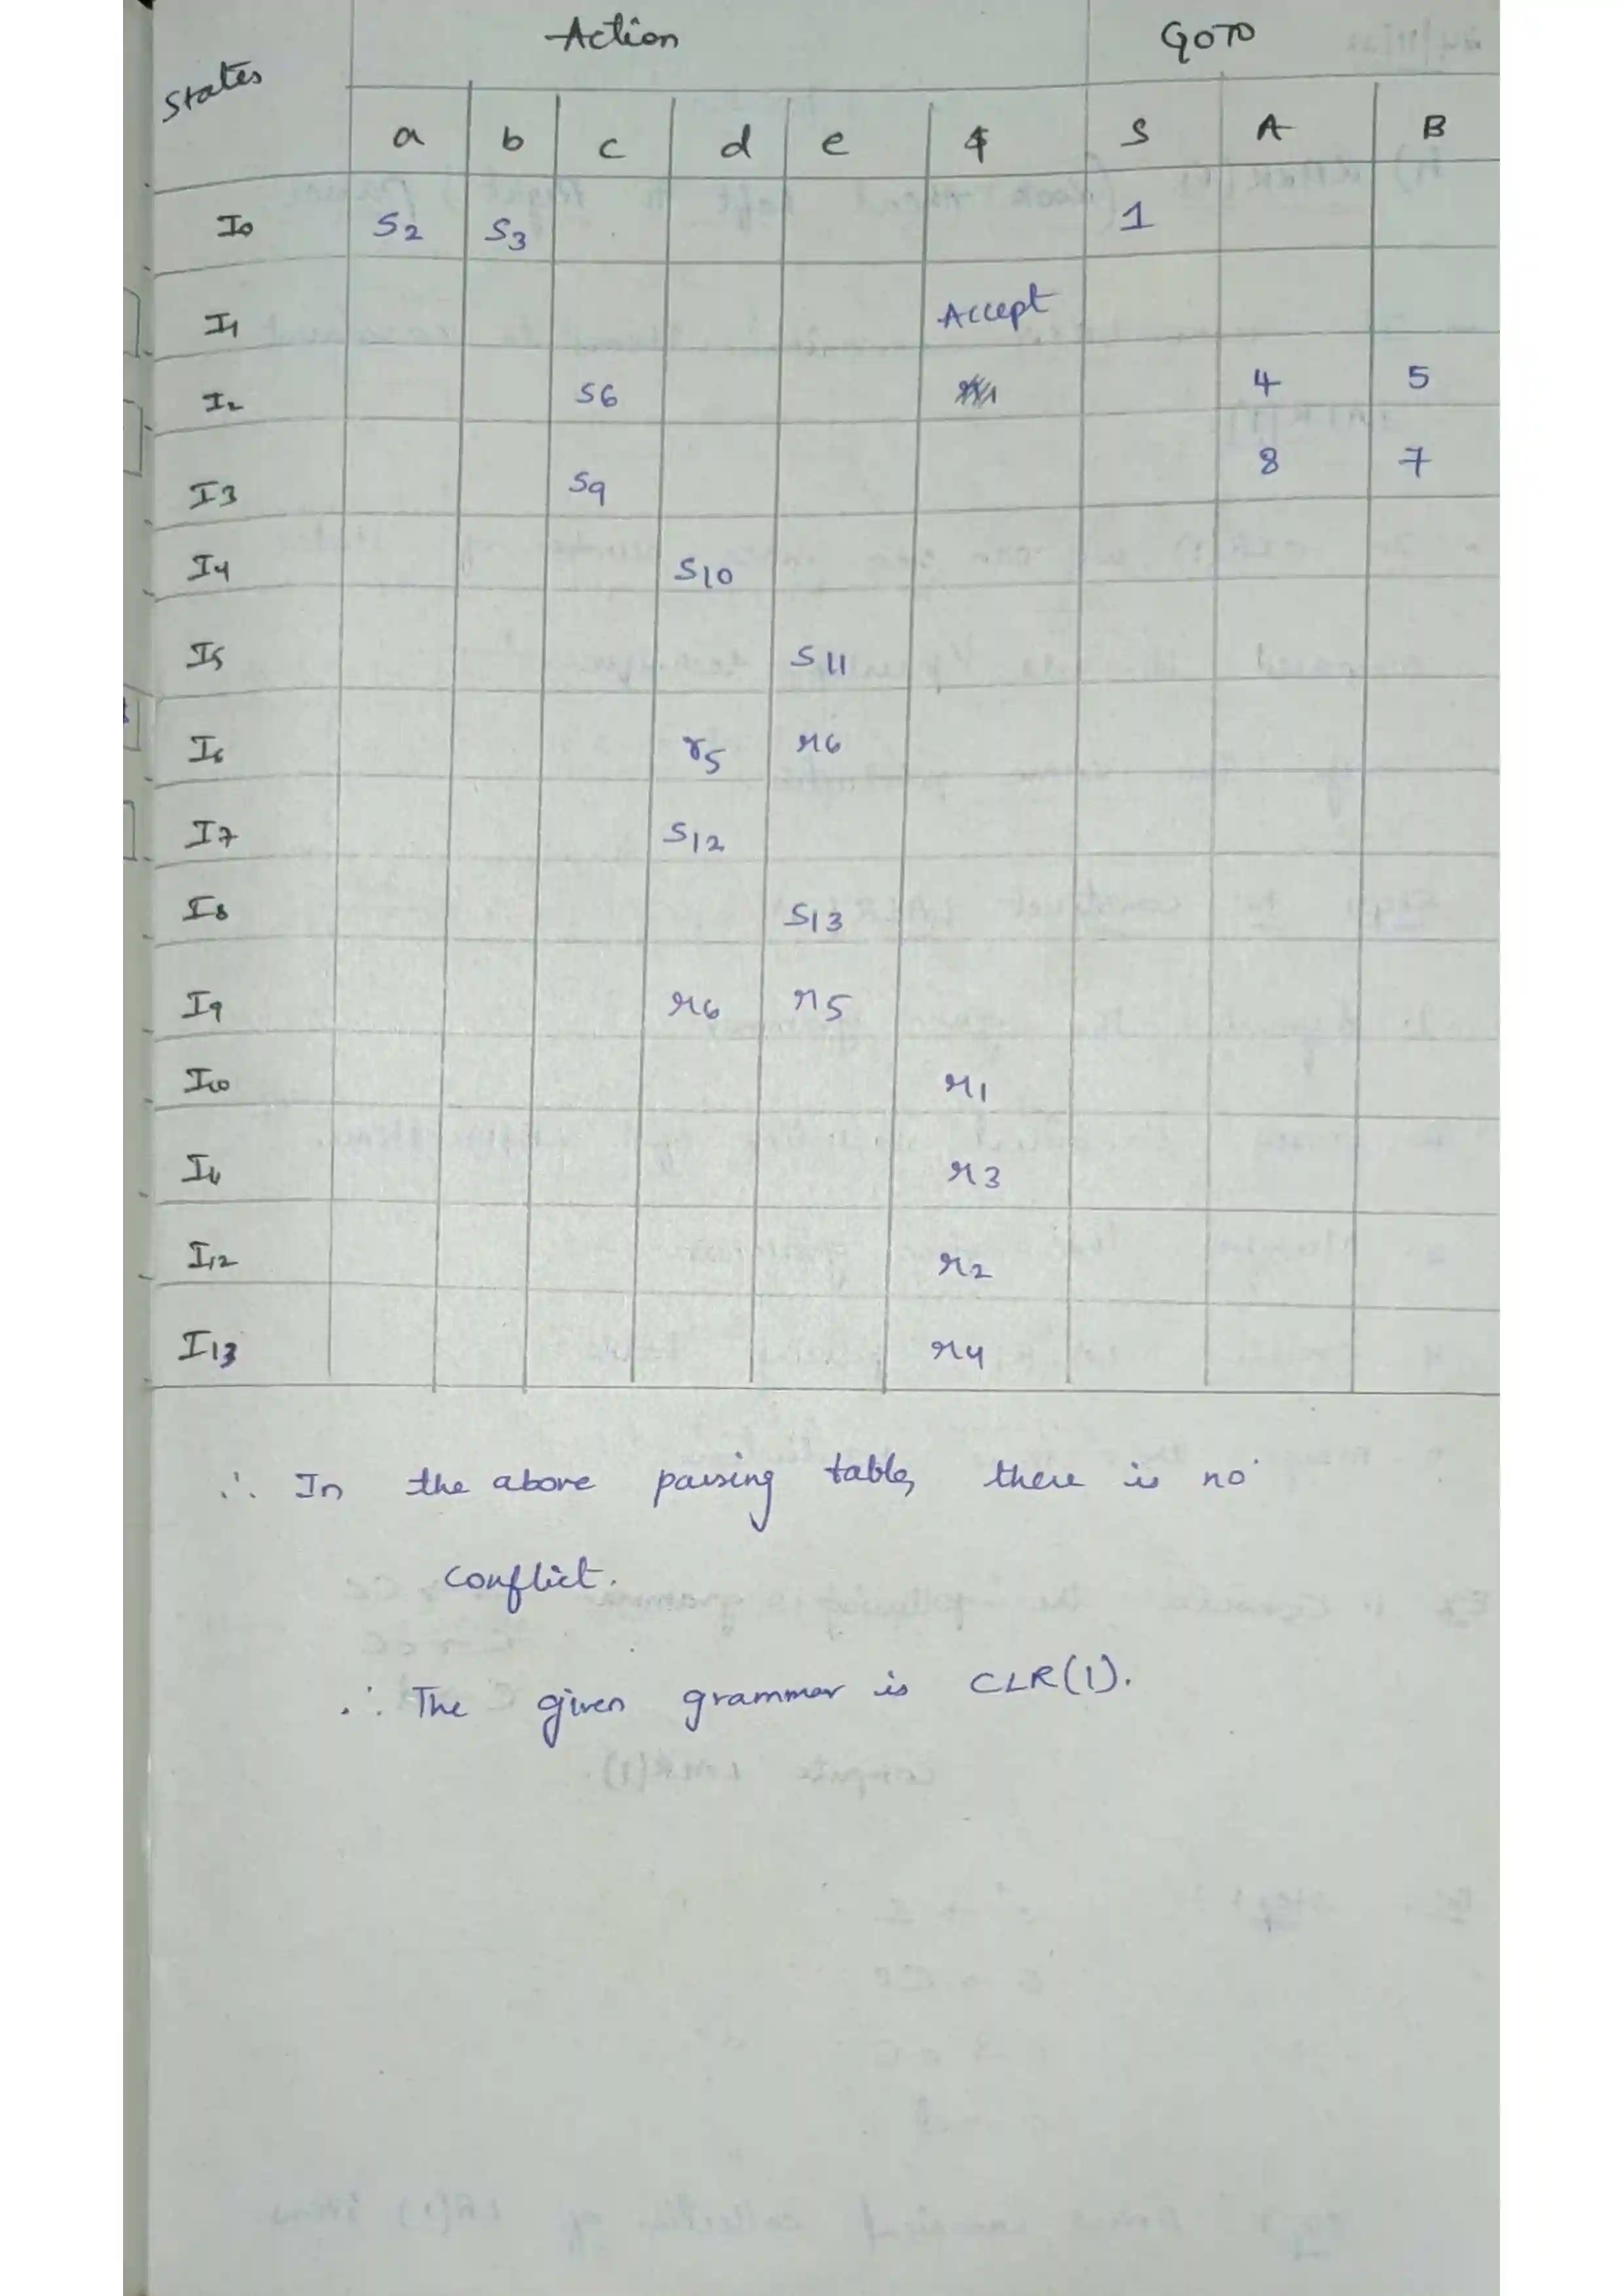 States Action GOTO
a b c d e $ S A B
I0 S2 S3 1
I1 Accept
I2 S6 4 5
I3 S9 8 7
I4 S10
I5 S11
I6 r5 r6
I7 S12
I8 S13
I9 r6 r5
I10 r1
I11 r3
I12 r2
I13 r4
∴ In the above parsing table, there is no
conflict.
∴ The given grammar is CLR(1).